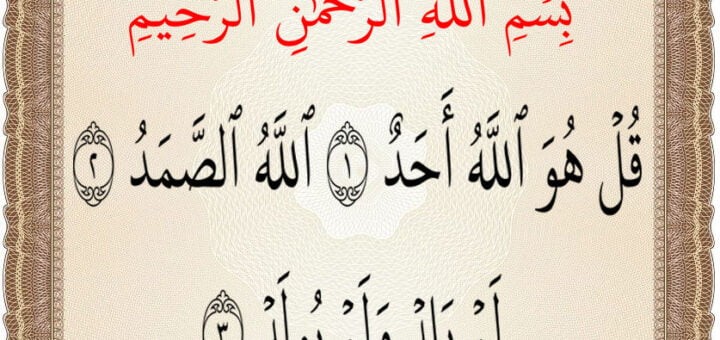 بِسْمِ اللَّهِ الرَّحْمَٰنِ الرَّحِيمِ
قُلْ هُوَ ٱللَّهُ أَحَدٌ ١ ٱللَّهُ ٱلصَّمَدُ ٢
لَمْ يَلِدْ وَلَمْ يُولَدْ ٣